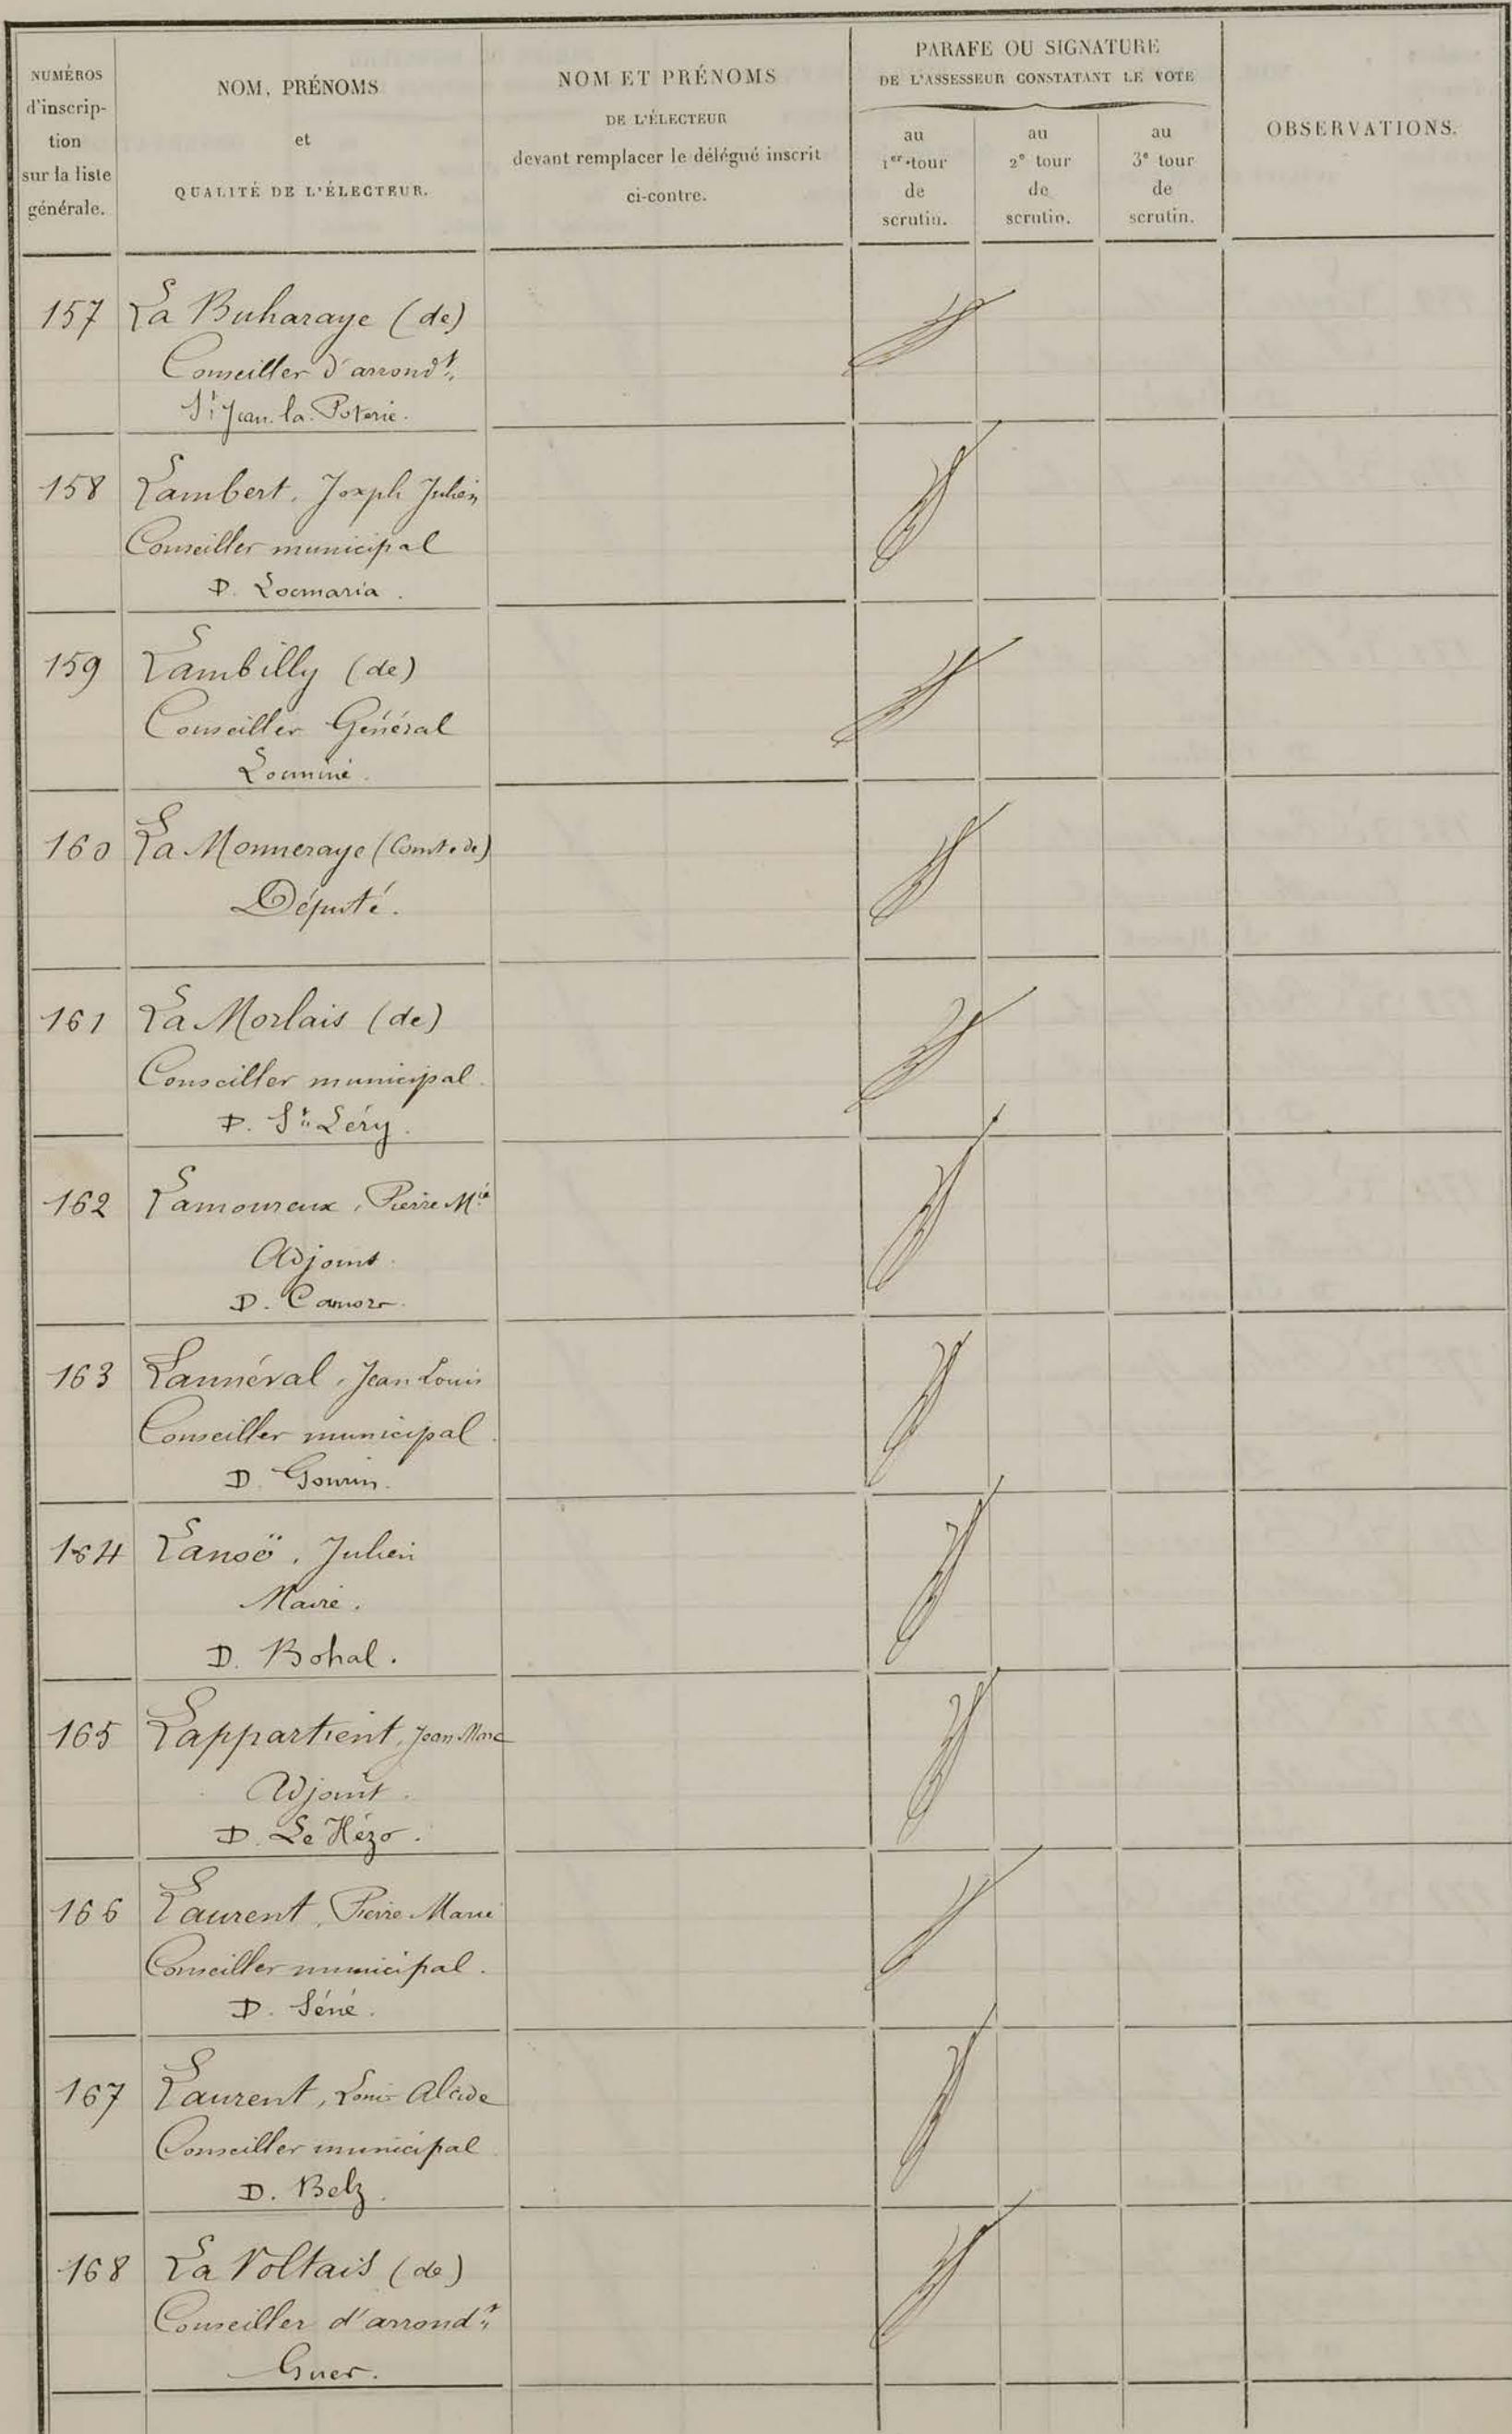 NUMÉROS
d'inscrip-
tion
sur la liste
générale.
NOM, PRÉNOMS
et
QUALITÉ DE L'ÉLECTEUR.
NOM ET PRÉNOMS
DE L'ÉLECTEUR
devant remplacer le délégué inscrit
ci-contre.
PARAFE OU SIGNATURE
DE L'ASSESSEUR CONSTATANT LE VOTE
au
1er tour
de
scrutin.
au
2e tour
de
scrutin.
au
3e tour
de
scrutin.
OBSERVATIONS.
157 La Buharaye (de)
Conseiller d'arrondt
St Jean-la-Poterie.
158 Lambert, Joseph Julien
Conseiller municipal
D. Locmaria.
159 Lambilly (de)
Conseiller Général
Locminé.
160 La Monneraye (Comte de)
Député.
161 La Morlais (de)
Conseiller municipal.
D. St Léry.
162 Lamoureux, Pierre Mie
Adjoint.
D. Camors.
163 Lannéval, Jean Louis
Conseiller municipal.
D. Gourin.
164 Lansö, Julien
Maire.
D. Bohal.
165 Lappartient, Jean Marc
Adjoint.
D. Le Hézo.
166 Laurent, Pierre Marie
Conseiller municipal.
D. Séné.
167 Laurent, Louis Alcide
Conseiller municipal
D. Belz.
168 La Voltais (de)
Conseiller d'arrondt
Guer.